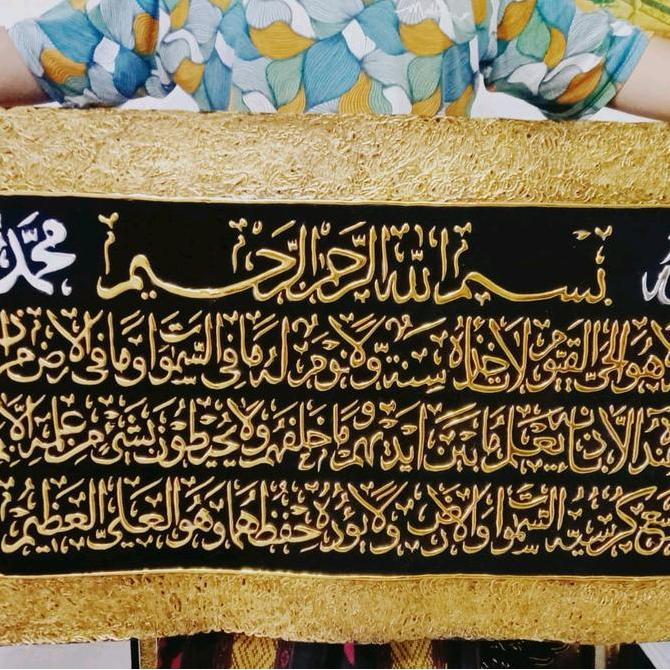 بسم الله الرحمن الرحيم
محمد
هو الحي القيوم لا تأخذه سنة ولا نوم له ما في السموات وما في الارض من
الا باذنه يعلم ما بين ايديهم وما خلفهم ولا يحيطون بشيء من علمه الا
كرسيه السموات والارض ولا يؤده حفظهما وهو العلي العظيم